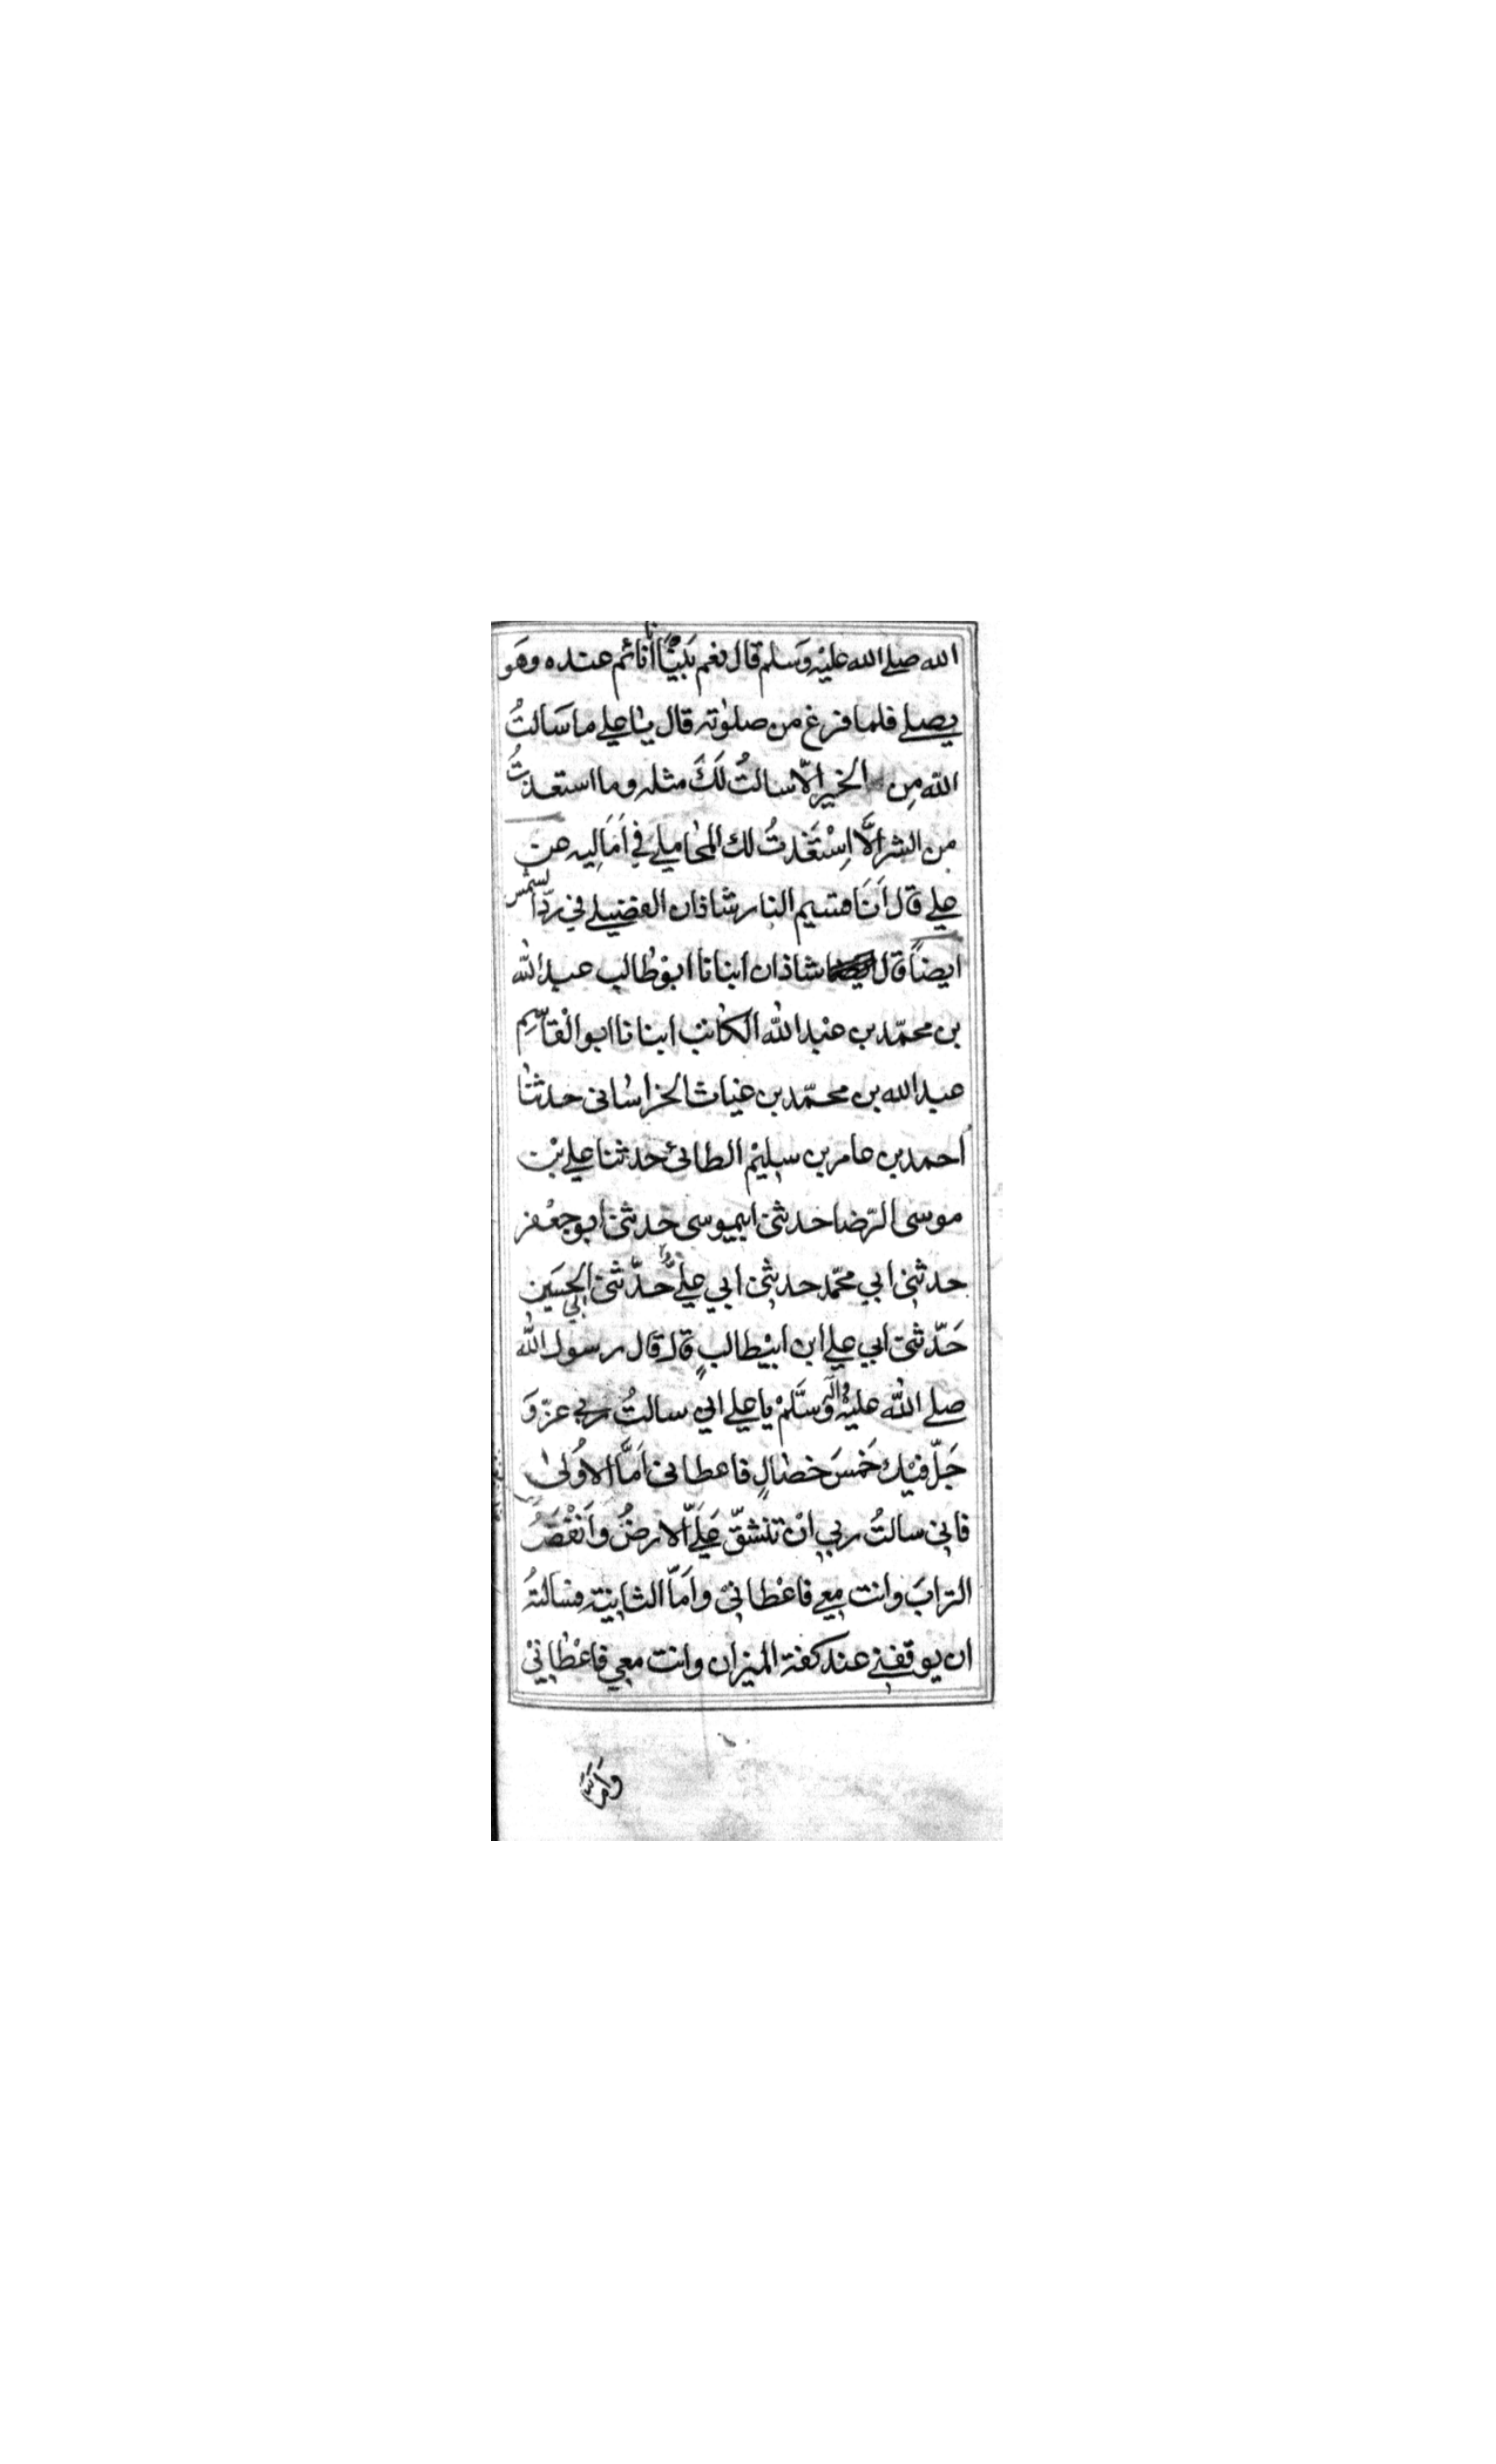 الله صلى الله عليه وسلم قال نعم بَيْنَا أنا نائم عنده وهَو
يصلي فلما فرغ من صلوٰته قال يٰا علي ما سَالتُ
الله مِن الخير الّا سالتُ لَكَ مثله وما استعذتُ
من الشر الَّا اِسْتَعَذتُ لك المحٰاملي في اَمَاليه عن
علي قال اَنَا قسيم النار شاذان الفضيلي في ردّ الشمس
ايضاً قال شاذان انبانا ابو طٰالب عبد الله
بن محمّد بن عبد الله الكاتب انبانا ابو القاسِم
عبد الله بن محمّد بن غياث الخراسٰانى حدثنٰا
احمد بن عامر بن سليم الطائئ حدثنا علي بن
موسى الرّضا حدثنى ابي موسى حدثنى ابو جعفر
حدثنى ابي محمّد حدثنى ابي علي حدّثنى ابي الحسَين
حَدّثنى ابي علي ابن ابيطالبٍ قال قال رسول الله
صلي الله عليه وآله وَسَلَّمْ يا علي اني سالتُ ربي عزّ وَ
جَلّ فيك خَمسَ خصٰالٍ فاعطانى اَمَّا الاُولىٰ
فاني سالتُ ربي انْ تنشقّ عَلَيّ الارضُ واَنْفُضَ
الترابَ وانت معي فاعْطانيْ واَمّا الثانية فسالتُه
ان يوقفني عند كفة الميزان وانت معي فاعْطٰانيْ
وَامّا